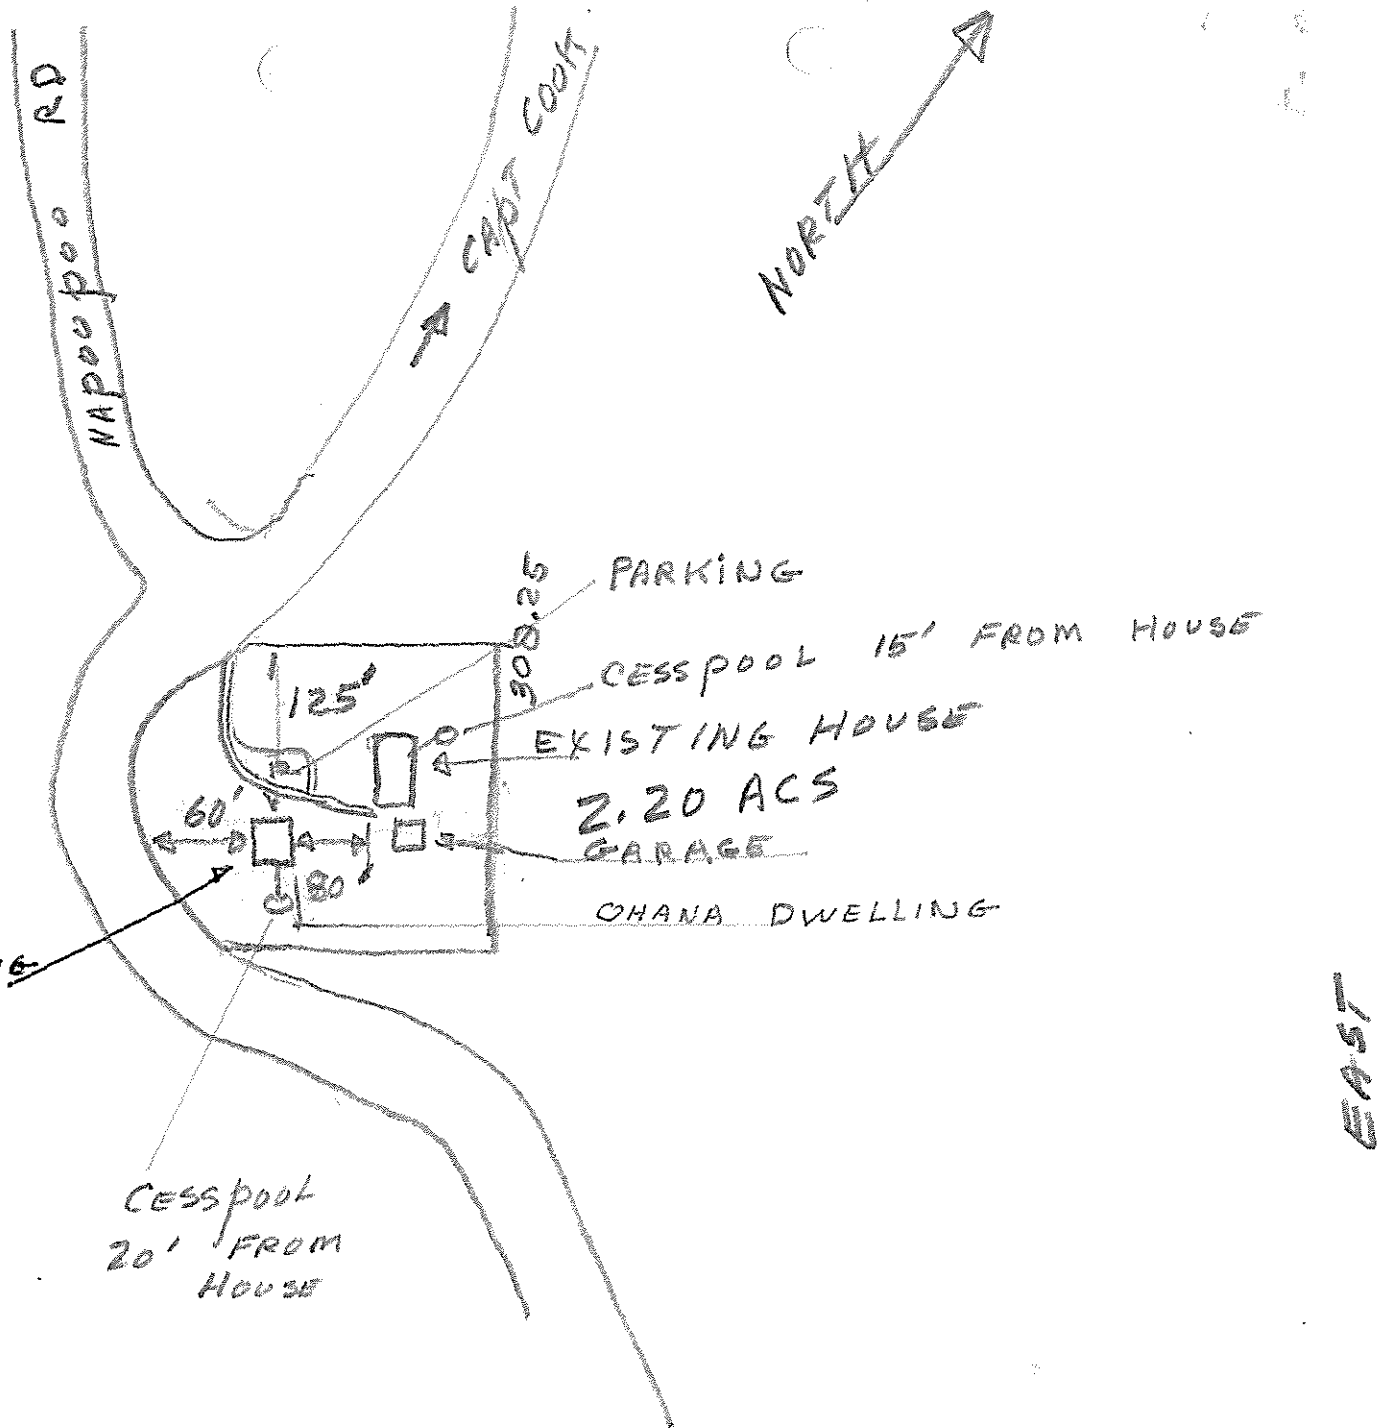 NAPOOPOO RD
CAPT COOK
NORTH
PARKING
308.25
CESSPOOL 15' FROM HOUSE
125'
EXISTING HOUSE
2.20 ACS
60'
GARAGE
80
OHANA DWELLING
EAST
CESSPOOL
20' FROM
HOUSE